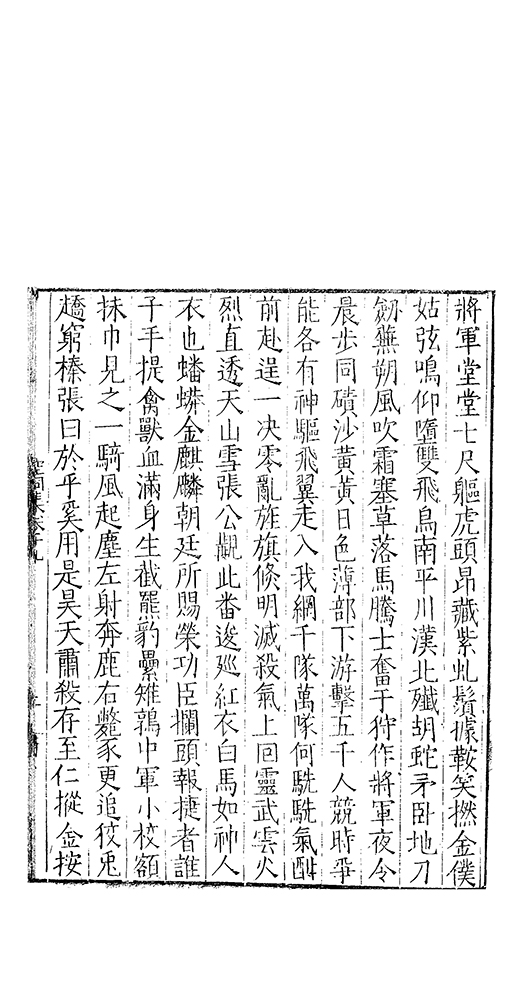 將軍堂堂七尺軀虎頭昂藏紫虬鬚據鞍笑撚金僕
姑弦鳴仰墮雙飛鳥南平川漢北殲胡蛇矛卧地刀
劒蕪朔風吹霜塞草落馬騰士奮于狩作將軍夜令
晨步同磧沙黄黄日色薄部下游擊五千人競時爭
能各有神驅飛翼走入我網千隊萬隊何駪駪氣酣
前赴逞一决零亂旌旗倐明滅殺氣上回靈武雲火
烈直透天山雪張公觀此畨逡廵紅衣白馬如神人
衣也蟠蟒金麒麟朝廷所賜榮功臣攔頭報捷者誰
子手提禽獸血滿身生截羆豹纍雉鶉中軍小校額
抹巾見之一騎風起塵左射奔鹿右鼈豕更追狡兎
趫窮榛張曰於乎奚用是昊天肅殺存至仁摐金按
空同集卷十九